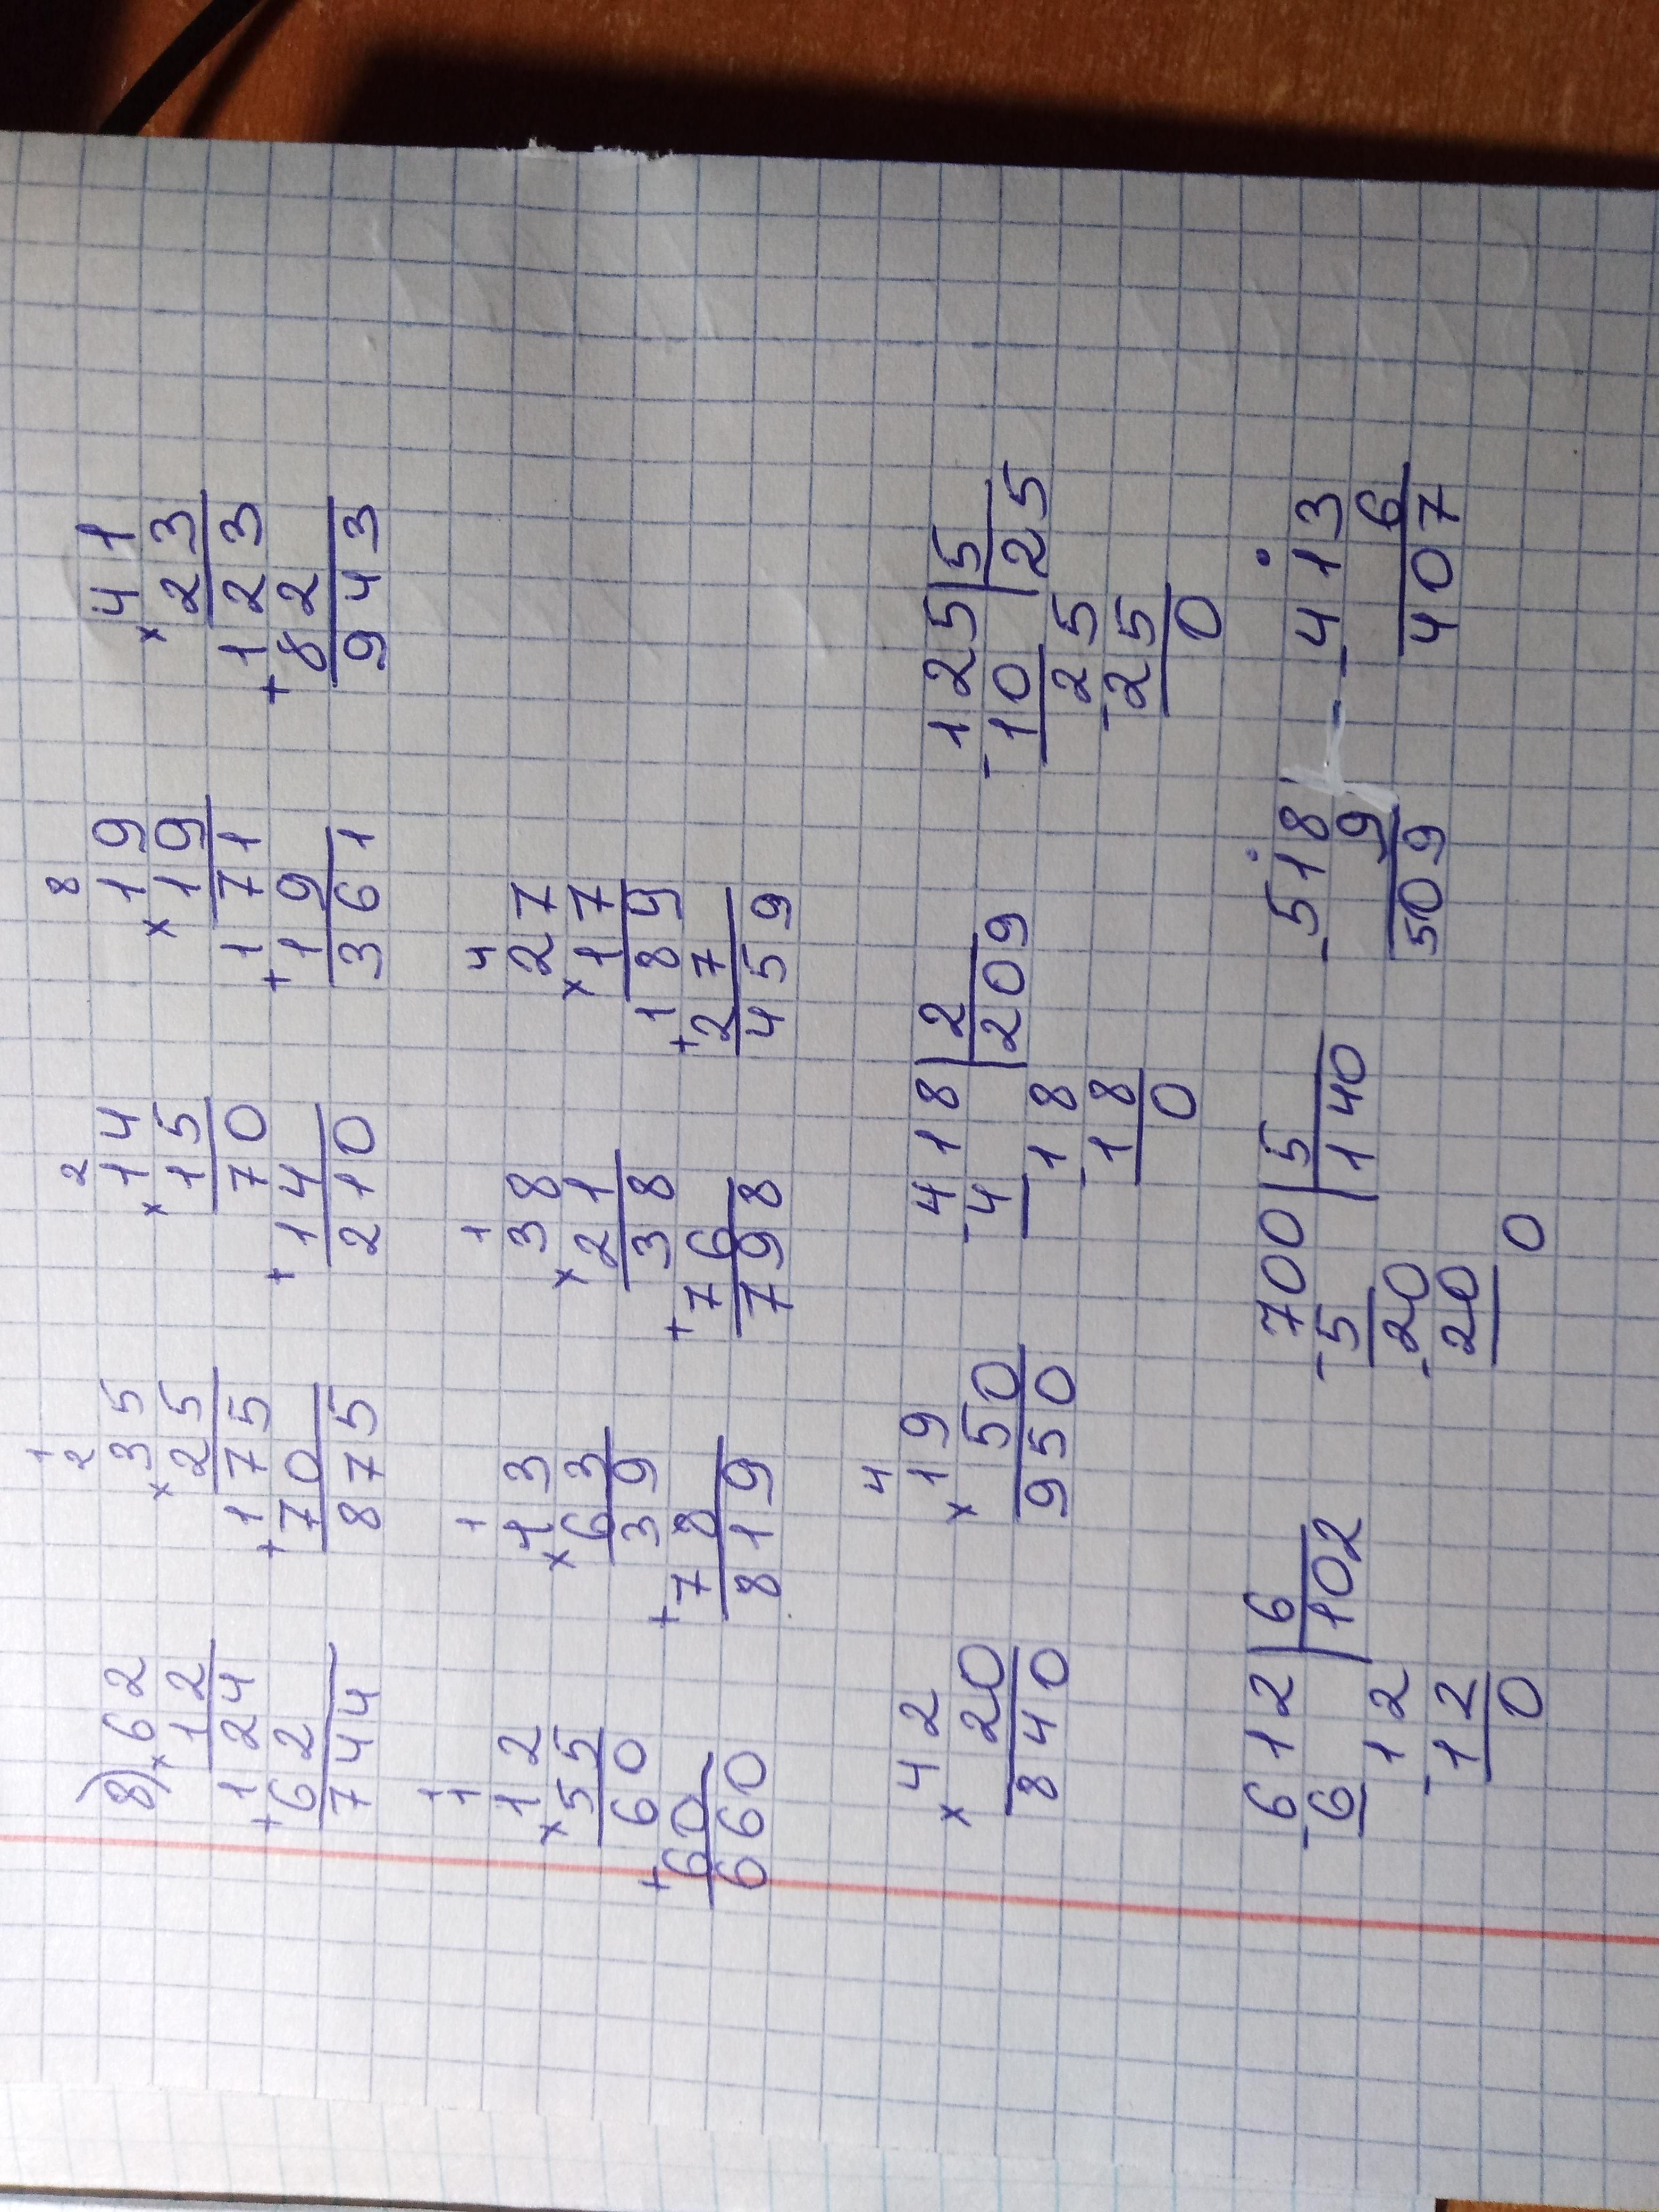 8) ×62 ×35 ×14 ×19 ×41
12 25 15 19 23
124 175 70 171 123
+62 +70 +14 +19 +82
744 875 210 361 943
×12 ×13 ×38 ×27
55 63 21 17
60 39 38 189
+60 +78 +76 +27
660 819 798 459
×42 ×19 418 | 2 125 | 5
20 50 -4 | 209 -10 | 25
840 950 18 25
-18 -25
0 0
612 | 6 700 | 5 -518 -413
-6 | 102 -5 | 140 9 6
12 20 509 407
-12 -20
0 0